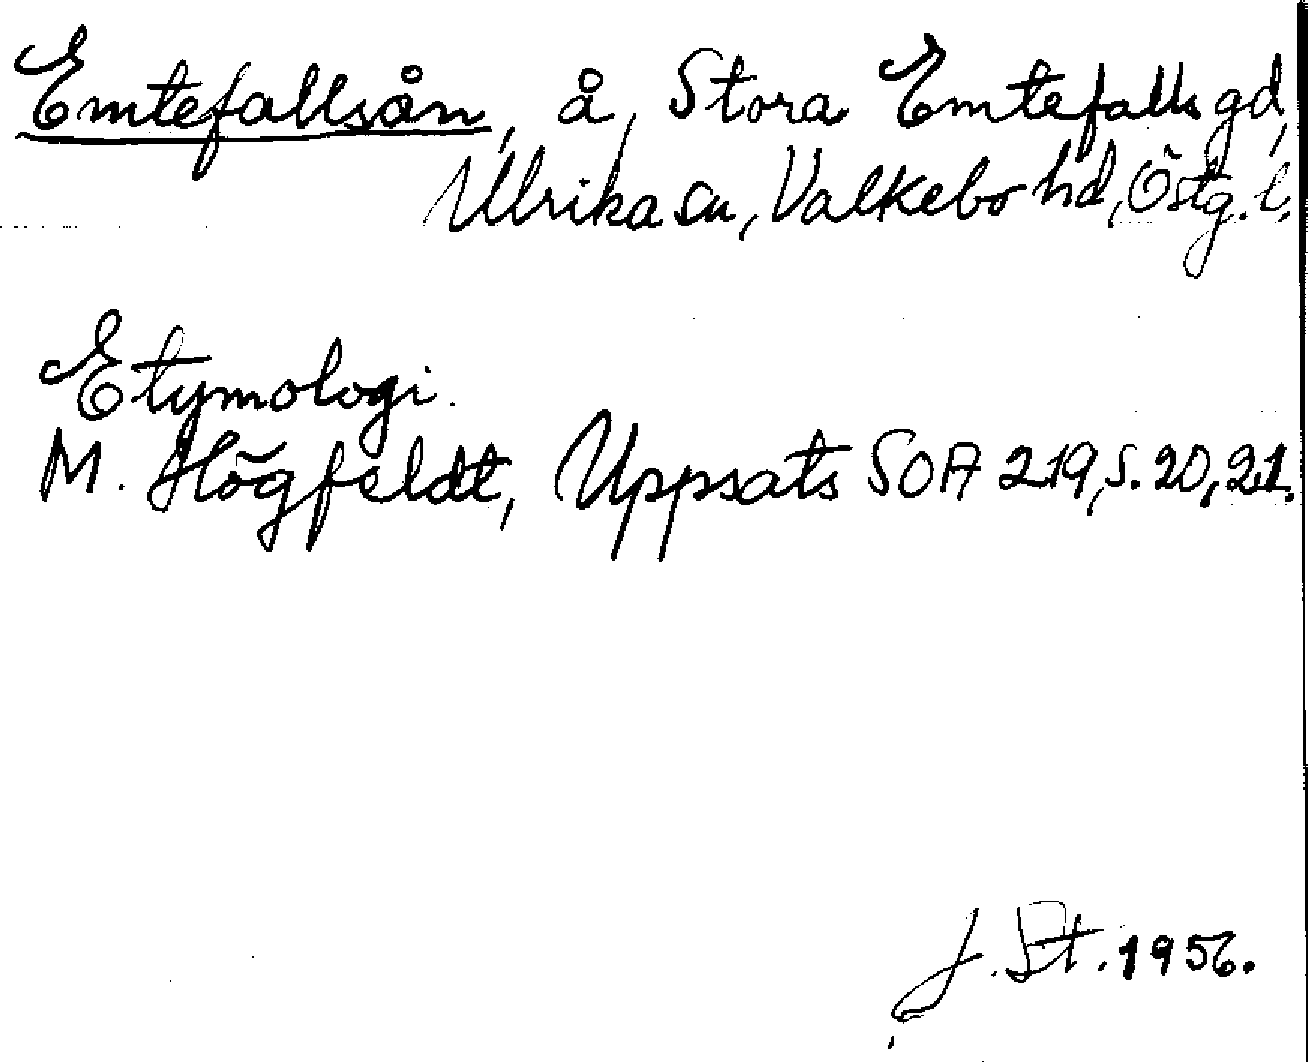 Emtefallsån, å, Stora Emtefalls gd,
Ulrika sn, Valkebo hd, Östg. l.
Etymologi.
M. Högfeldt, Uppsats SOA 219, s. 20, 21.
J. St. 1956.